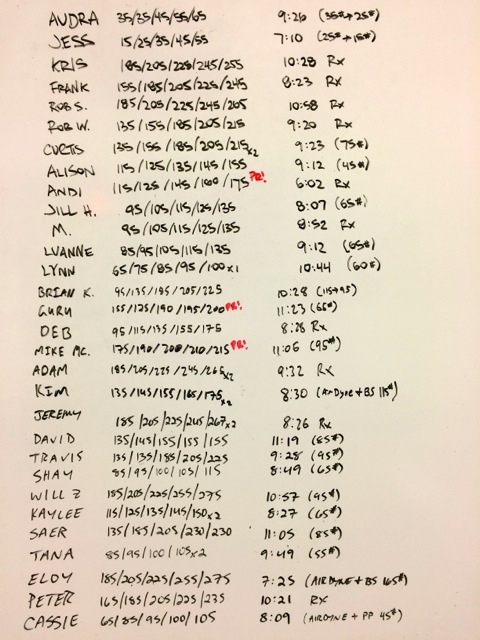 AUDRA 35/35/45/55/65 9:26 (35#+25#)
JESS 15/25/35/45/55 7:10 (25#+15#)
KRIS 185/205/225/245/255 10:28 Rx
FRANK 155/185/205/225/245 8:23 Rx
ROB S. 185/205/225/245/205 10:58 Rx
ROB W. 135/155/185/205/215 9:20 Rx
CURTIS 135/155/185/205/215x2 9:23 (75#)
ALISON 115/125/135/145/155 9:12 (45#)
ANDI 115/125/145/160/175 PR! 6:02 Rx
JILL H. 95/105/115/125/135 8:07 (65#)
M. 95/105/115/125/135 8:52 Rx
LUANNE 85/95/105/115/135 9:12 (65#)
LYNN 65/75/85/95/100x1 10:44 (60#)
BRIAN K. 95/135/185/205/225 10:28 (115+95)
GURU 155/175/190/195/200 PR! 11:23 (65#)
DEB 95/115/135/155/175 8:28 Rx
MIKE MC. 175/190/200/210/215 PR! 11:06 (95#)
ADAM 185/205/225/245/265x2 9:32 Rx
KIM 135/145/155/165/175x2 8:30 (AIRDYNE+BS 115#)
JEREMY 185/205/225/245/267x2 8:26 Rx
DAVID 135/145/155/155/155 11:19 (85#)
TRAVIS 135/135/185/205/225 9:28 (95#)
SHAY 85/95/100/105/115 8:49 (65#)
WILL Z 185/205/225/255/275 10:57 (95#)
KAYLEE 115/125/135/145/150x2 8:27 (65#)
SAER 135/185/205/230/230 11:05 (85#)
TANA 85/95/100/105x2 9:49 (55#)
ELOY 185/205/225/255/275 7:25 (AIRDYNE+BS 165#)
PETER 165/185/205/225/235 10:21 RX
CASSIE 65/85/95/100/105 8:09 (AIRDYNE+PP 45#)